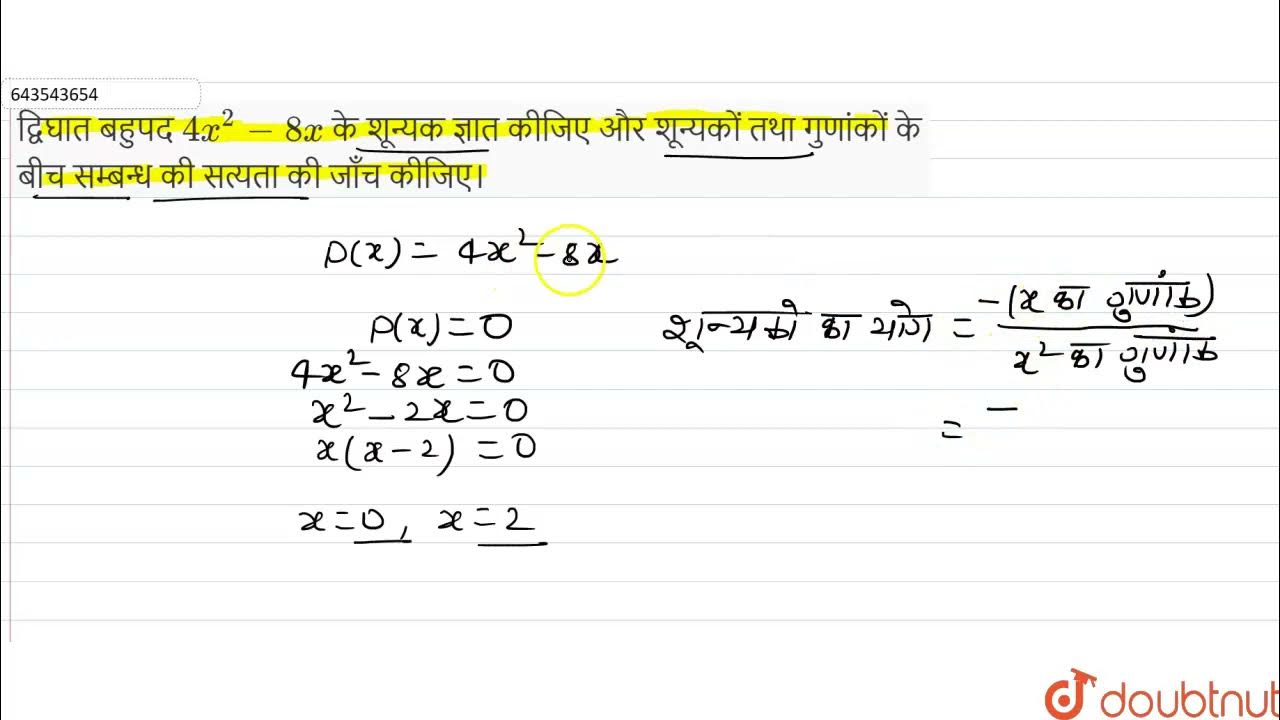 643543654
द्विघात बहुपद 4x² − 8x के शून्यक ज्ञात कीजिए और शून्यकों तथा गुणांकों के
बीच सम्बन्ध की सत्यता की जाँच कीजिए।
p(x) = 4x² - 8x
p(x) = 0
4x² - 8x = 0
x² - 2x = 0
x(x - 2) = 0
x = 0, x = 2
शून्यको का योग = -(x का गुणांक)
x² का गुणांक
= -
doubtnut